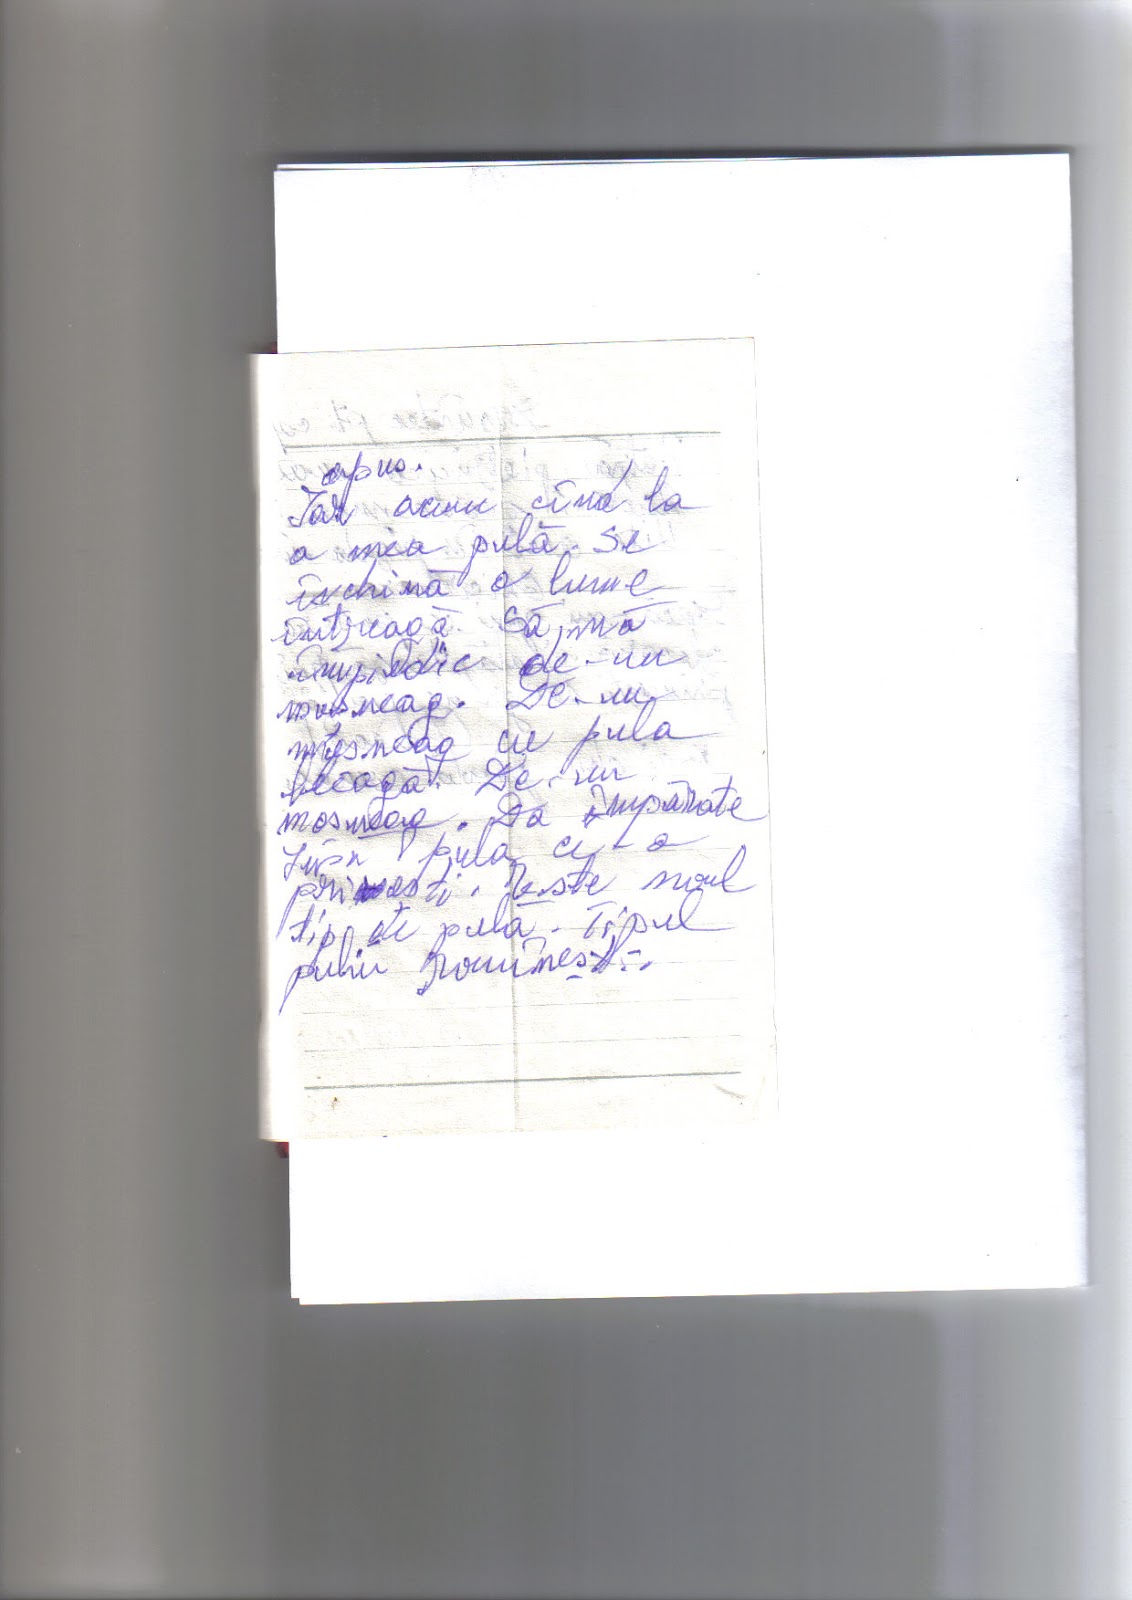 apus.
Iar acum cînd la
a mea pulă. Se
închină o lume
întreagă. Să mă
împiedic de-un
moșneag. De-un
moșneag cu pula
beagă. De-un
mosneag. Da împărate
pula ce-o
primesti. Este noul
tip de pulă. Tipul
pulii Romînesti.